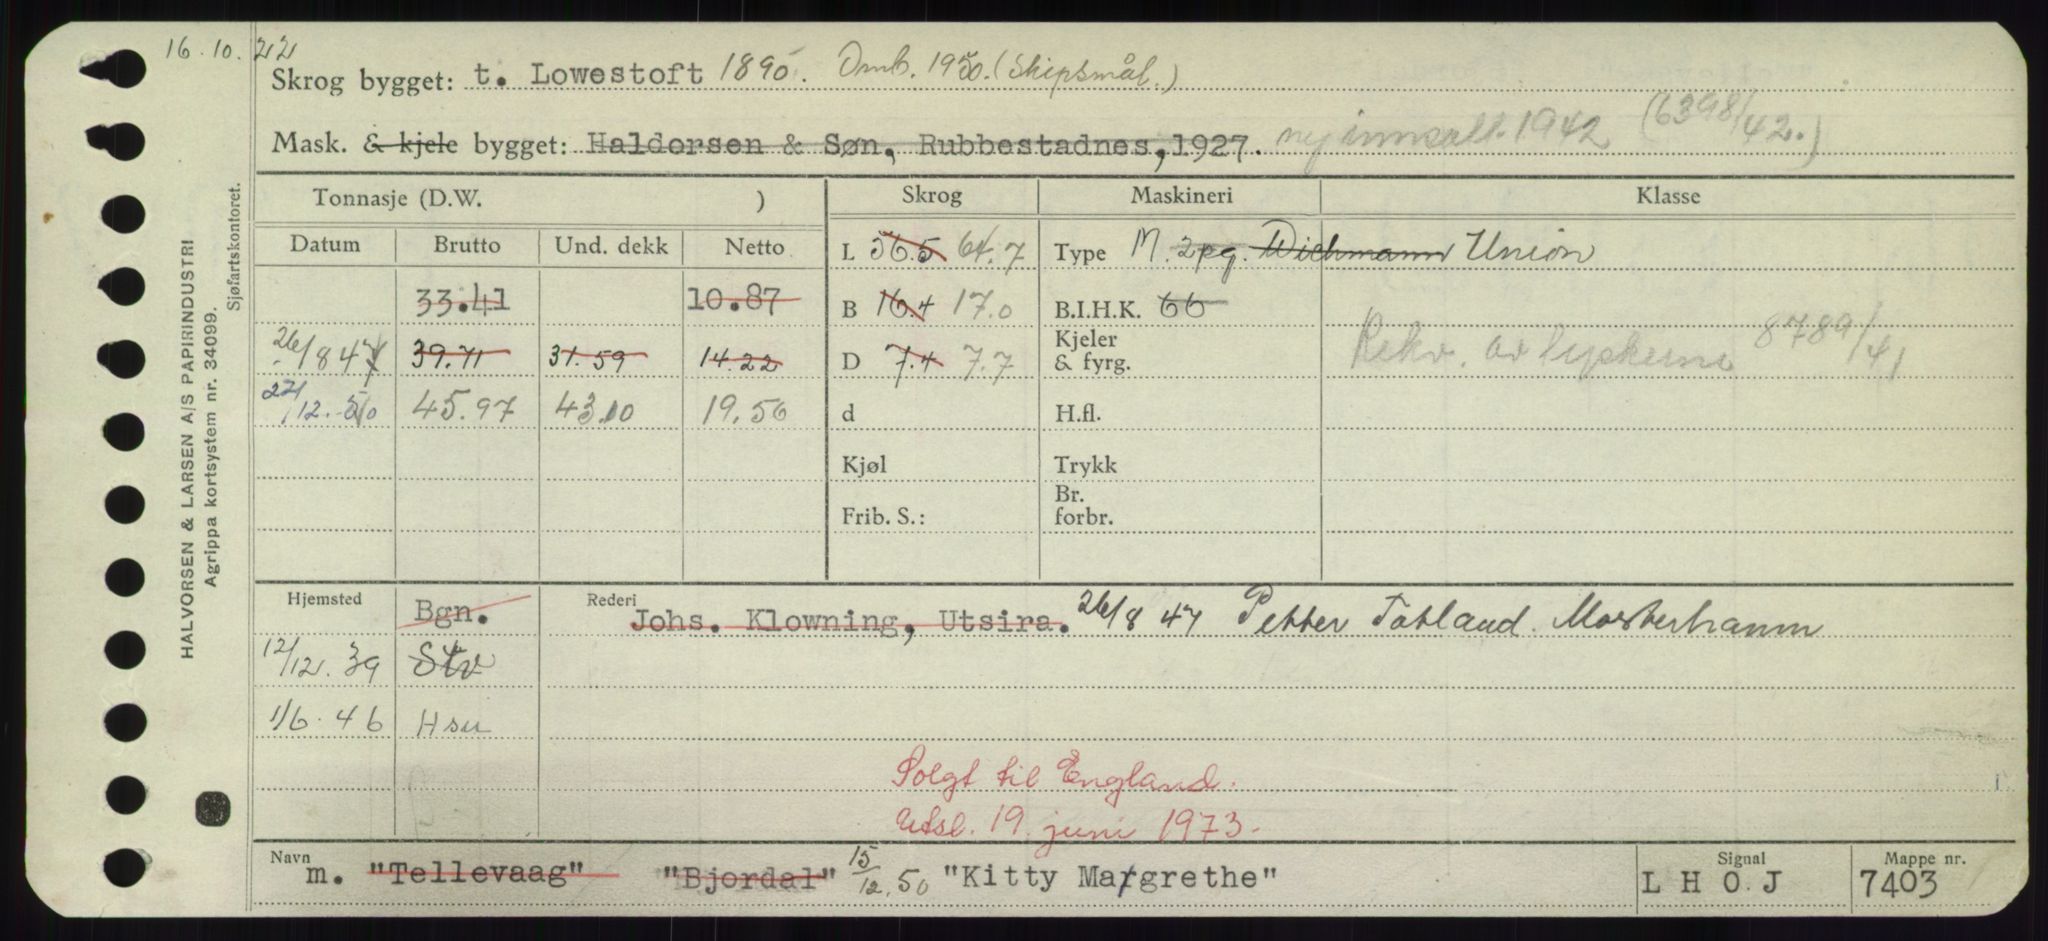 16.10.22
Skrog bygget: t. Lowestoft 1895. Omb. 1950. (Skipsmål.)
Mask. & kjele bygget: Haldorsen & Søn, Rubbestadnes, 1927. ny innsatt. 1942 (6398/42.)
Tonnasje (D.W. ) Skrog Maskineri Klasse
Datum Brutto Und. dekk Netto L 36.5 64.7 Type M. 2pg. Wichmann Union
33.41 10.87 B 16.4 17.0 B.I.H.K. 66
26/8 47 39.71 31.59 14.22 D 7.4 7.7 Kjeler & fyrg. Rekv. av tyskerne 8789/41
27/12.50 45.97 43.10 19.56 d H.fl.
Kjøl Trykk
Frib. S.: Br. forbr.
Hjemsted Bgn. Rederi Johs. Klowning, Utsira. 26/8 47 Petter Totland. Mosterhamn
12/12.39 Stv
1/6.46 Hsu
Solgt til England.
Utsl. 19. juni 1973.
Navn m. "Tellevaag" "Bjordal" 15/12.50 "Kitty Margrethe" Signal L H O J Mappe nr. 7403
HALVORSEN & LARSEN A/S PAPIRINDUSTRI
Agrippa kortsystem nr. 34099.
Sjøfartskontoret.